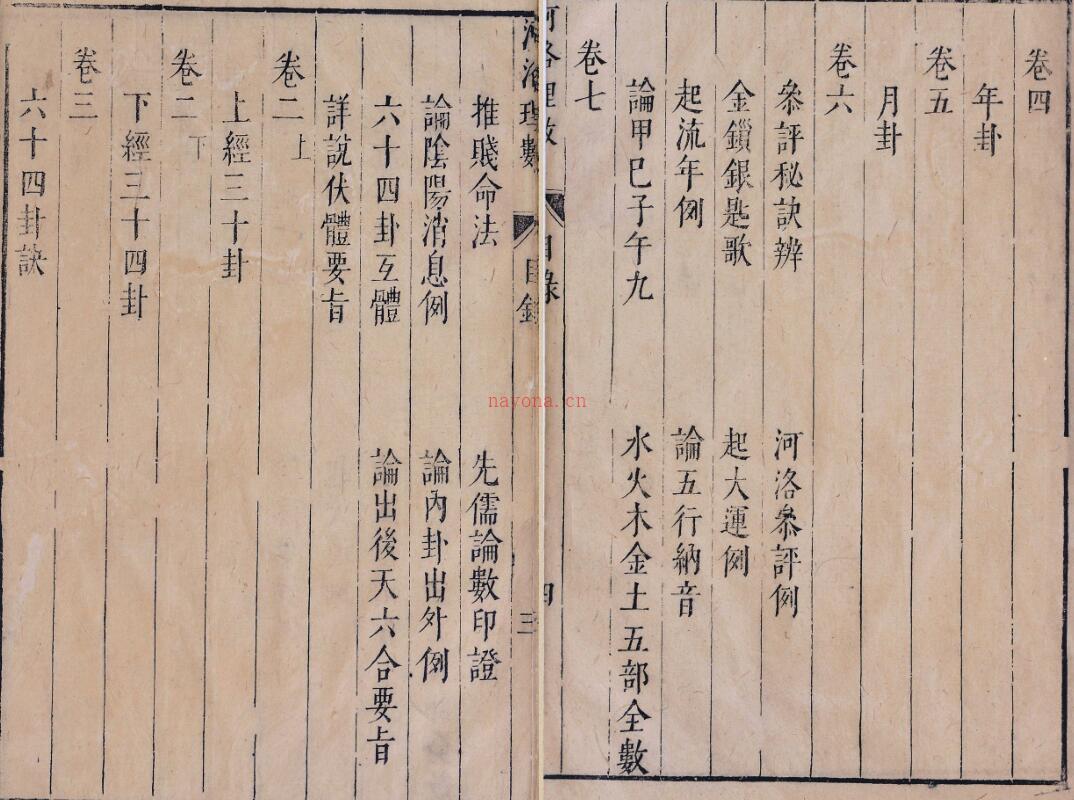 卷四
年卦
卷五
月卦
卷六
叅評秘訣辨
河洛叅評例
金鎖銀匙歌
起大運例
起流年例
論五行納音
論甲巳子午九
水火木金土五部全數
卷七
河洛理數
目錄
四
河洛理數
目錄
三
推賤命法
先儒論數印證
論陰陽消息例
論內卦出外例
六十四卦互體
論出後天六合要旨
詳說伏體要旨
卷二上
上經三十卦
卷二下
下經三十四卦
卷三
六十四卦訣
nayona.cn